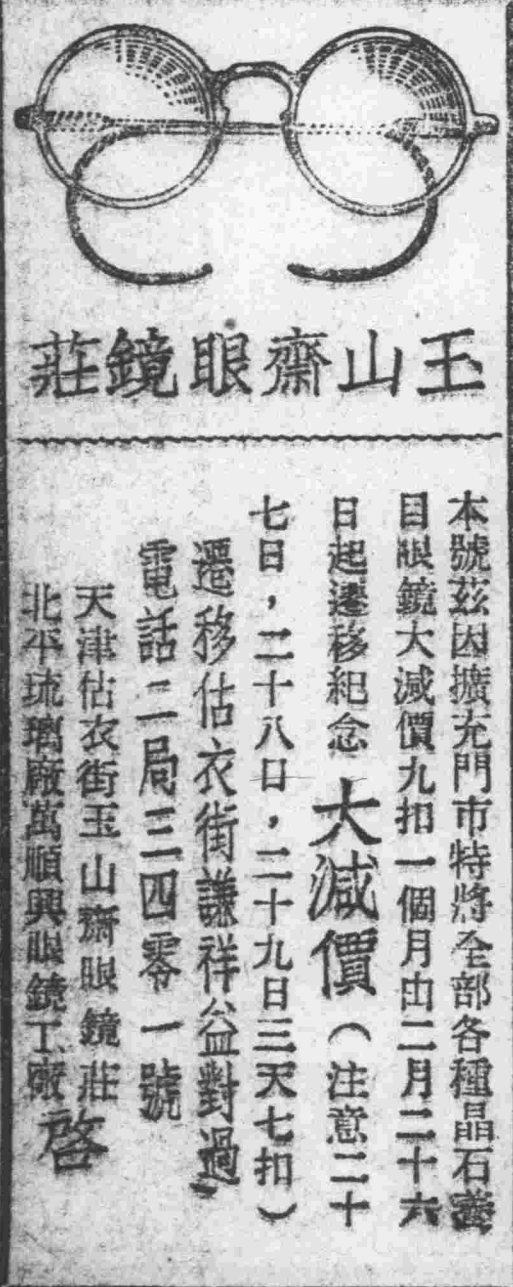 玉山齋眼鏡莊
本號茲因擴充門市特將全部各種晶石養
目眼鏡大減價九扣一個月由二月二十六
日起遷移紀念大減價（注意二十
七日，二十八日，二十九日三天七扣）
遷移估衣街謙祥益對過
電話二局三四零一號
天津估衣街玉山齋眼鏡莊
北平琉璃廠萬順興眼鏡工廠
啓